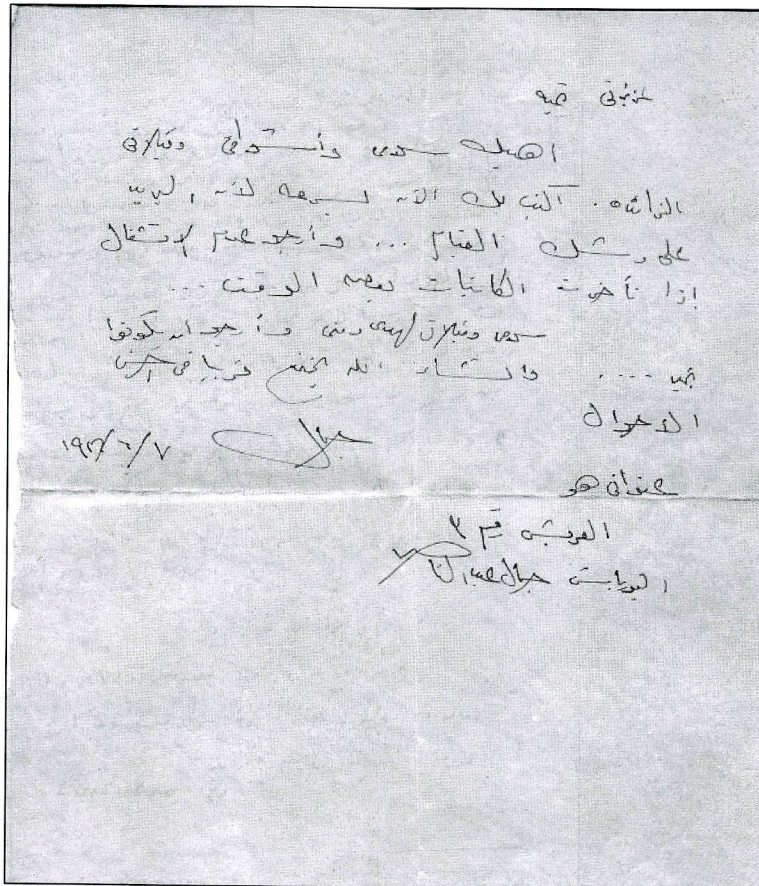 عزيزتى تحيه
اهديك سلامى وأشواقى وقبلاتى
الزائده. اكتب لك الآن بسرعه لأن البريد
على وشك القيام ... وأرجو عدم الانشغال
إذا تأخرت الكتابات بعض الوقت ...
سلامى وقبلاتى لهدى ومنى وأرجو ان تكونوا
بخير .... وانشاء الله نجتمع قريبا فى احسن
الاحوال
جمال ٧/٦/
عنوانى هو
العريش قسم ٣
البوزباشى جمال عبد الناصر